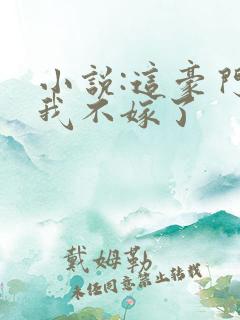 小説:這豪門
我不嫁了
戴姆勒
未經同意禁止轉載